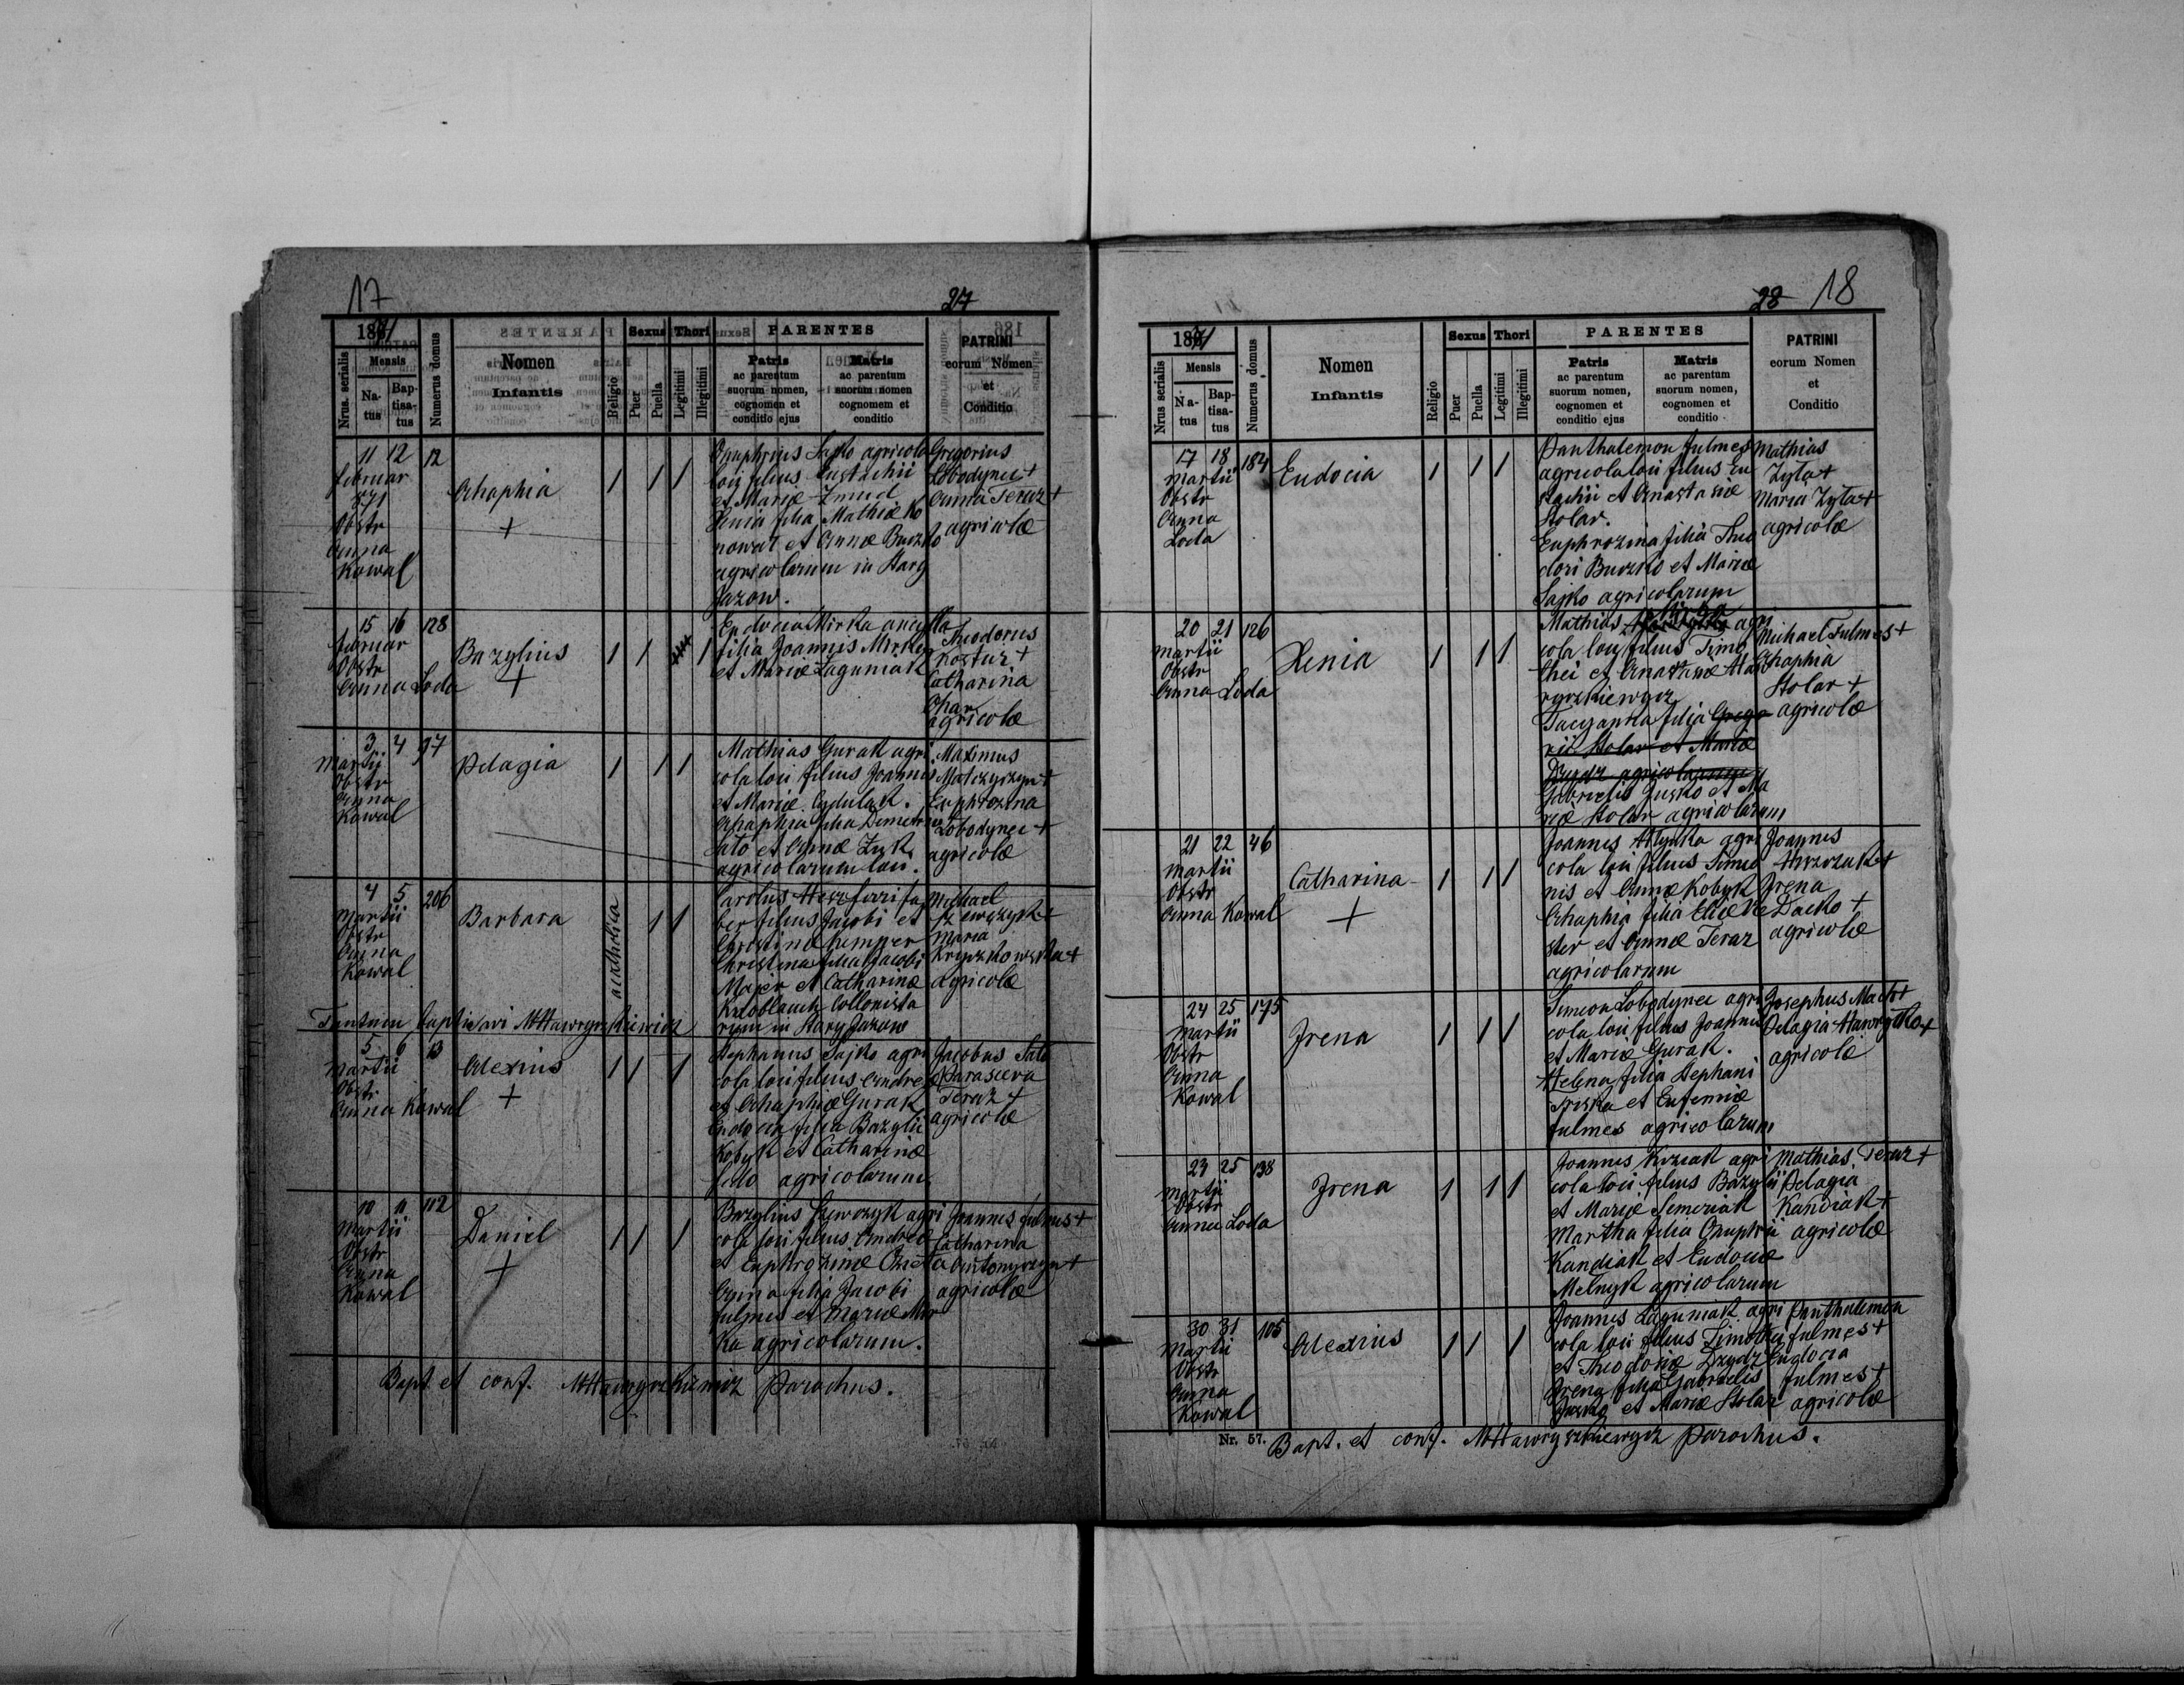 17
27
1871
Nrus. serialis
Mensis
Na-
tus
Bap-
tisa-
tus
Numerus domus
Nomen
Infantis
Religio
Sexus
Puer
Puella
Thori
Legitimi
Illegitimi
PARENTES
Patris
ac parentum
suorum nomen,
cognomen et
conditio ejus
Matris
ac parentum
suorum nomen
cognomem et
conditio
PATRINI
eorum Nomen
et
Conditio
11 12 12
Februar
871
Obstr
Anna
Kowal
Ahaphia
+
1 1 1
Onuphrius Sajko agricola
loci filius Eustachii
et Mariæ Zmud
Xenia filia Mathiæ Ko
nowal et Annæ Burzko
agricolarum in Stary
Jazow.
Gregorius
Lobodynec +
Anna Teraz +
agricolæ
15 16 128
Februar
Obstr
Anna Loda
Bazylius
+
1 1 1
Eudocia Mirka ancilla
filia Joannis Mirka
et Mariæ Laguniak
Theodorus
Kostur +
Catharina
agricolæ
3 4 97
Martii
Obstr
Anna
Kowal
Pelagia
1 1 1
Mathias Gurak agri
cola loci filius Joannis
et Mariæ Cydulak.
Ahaphia filia Demetrii
Sato et Annæ Zuk
agricolarum loci.
Maximus
Matczyszyn +
Euphrozina
Lobodynec +
agricolæ
4 5 206
Martii
Obstr
Anna
Kowal
Barbara
acatholica
1 1
Carolus Herz ferri fa
ber filius Jacobi et
Christinæ Kemper
Christina filia Jacobi
Majer et Catharinæ
Knoblauch Collonista
rum in Stary Jazow
Michael
Szewczyk +
Maria
Kryzkowska +
Agricolæ
Tantum baptisavi MHawryszkiewicz
5 6 13
Martii
Obstr
Anna Kowal
Alexius
+
1 1 1
Stephanus Sajko agri
cola loci filius Andreæ
et Ahaphiæ Gurak
Eudocia filia Bazylii
Kobyk et Catharinæ
Sato agricolarum
Jacobus Sato
Parasceva
Teraz +
agricolæ
10 11 112
Martii
Obstr
Anna
Kowal
Daniel
+
1 1 1
Bazylius Szewczyk agri
cola loci filius Andreæ
et Euphrozinæ
Anna filia Jacobi
Fulmes et Mariæ Mir
ka agricolarum.
Joannes Fulmes +
Catharina
Antonyszyn +
agricolæ
Bapt et conf. MHawryszkiewicz Parochus.
28 18
1871
Nrus serialis
Mensis
Na-
tus
Bap-
tisa-
tus
Numerus domus
Nomen
Infantis
Religio
Sexus
Puer
Puella
Thori
Legitimi
Illegitimi
PARENTES
Patris
ac parentum
suorum nomen,
cognomen et
conditio ejus
Matris
ac parentum
suorum nomen,
cognomen et
conditio
PATRINI
eorum Nomen
et
Conditio
17 18 184
Martii
Obstr
Anna
Loda
Eudocia
1 1 1
Panthalemon Fulmes
agricola loci filius Eu
stachii et Anastasiæ
Stolar.
Euphrozina filia Theo
dori Burzko et Mariæ
Sajko agricolarum
Mathias
Zyla +
Maria Zyla +
agricolæ
20 21 126
Martii
Obstr
Anna Loda
Xenia
1 1 1
Mirka
Mathias agri
cola loci filius Timo
thei et Anastasiæ Haw
ryszkiewycz
Tacyanna filia Grego
rii Stolar et Mariæ
Dzydz agricolarum
Gabrielis Jusko et Ma
riæ Stolar agricolarum
Michael Fulmes +
Ahaphia
Stolar +
agricolæ
21 22 46
Martii
Obstr
Anna Kowal
Catharina
+
1 1 1
Joannes Hlynka agri
cola loci filius Simeo
nis et Annæ Kobyk
Ahaphia filia Eliæ Ne
ster et Annæ Teraz
agricolarum
Joannes
Irena
Dacko +
agricolæ
24 25 175
Martii
Obstr
Anna
Kowal
Irena
1 1 1
Simeon Lobodynec agri
cola loci filius Joannis
et Mariæ Gurak.
Helena filia Stephani
Triska et Eufemiæ
Fulmes agricolarum
Josephus Mach +
Pelagia Hawrylko +
agricolæ
23 25 198
Martii
Obstr
Anna Loda
Irena
1 1 1
Joannes Kuziak agri
cola loci filius Bazylii
et Mariæ Semeriak
Martha filia Onuphrii
Kandiak et Eudociæ
Melnyk agricolarum
Mathias Teraz +
Pelagia
Kandiak +
agricolæ
30 31 105
Martii
Obstr
Anna
Kowal
Alexius
1 1 1
Joannes Laguniak agri
cola loci filius Timothei
et Theodoriæ Dzydz
Irena filia Gabrielis
Jusko et Mariæ Stolar
Panthalemon
Fulmes +
Eudocia
Fulmes +
agricolæ
Nr. 57.
Bapt. et conf. MHawryszkiewycz Parochus.